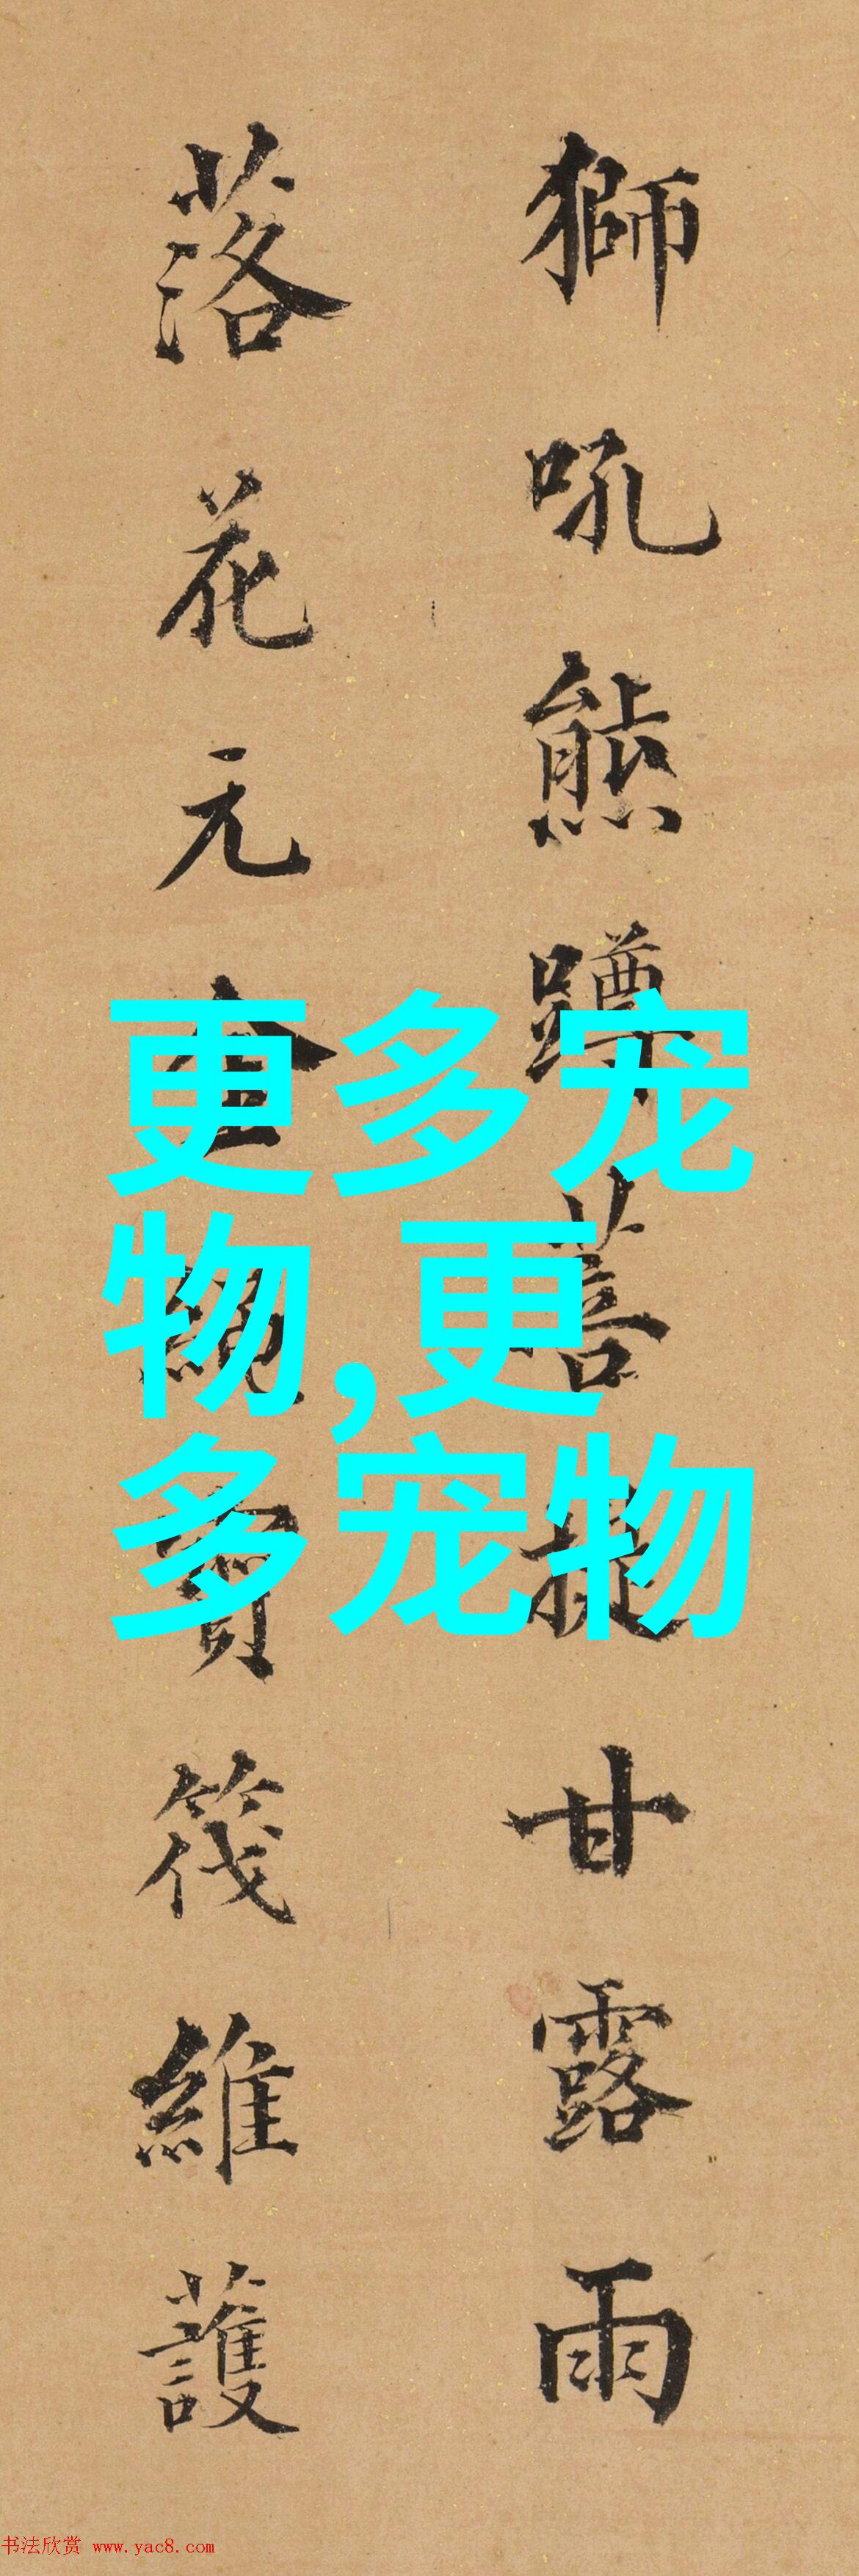 獅吼熊蹲菩提甘露雨
落花元會總寶筏維護
更多宠
物,更
多宠物
书法欣赏 www.yac8.com